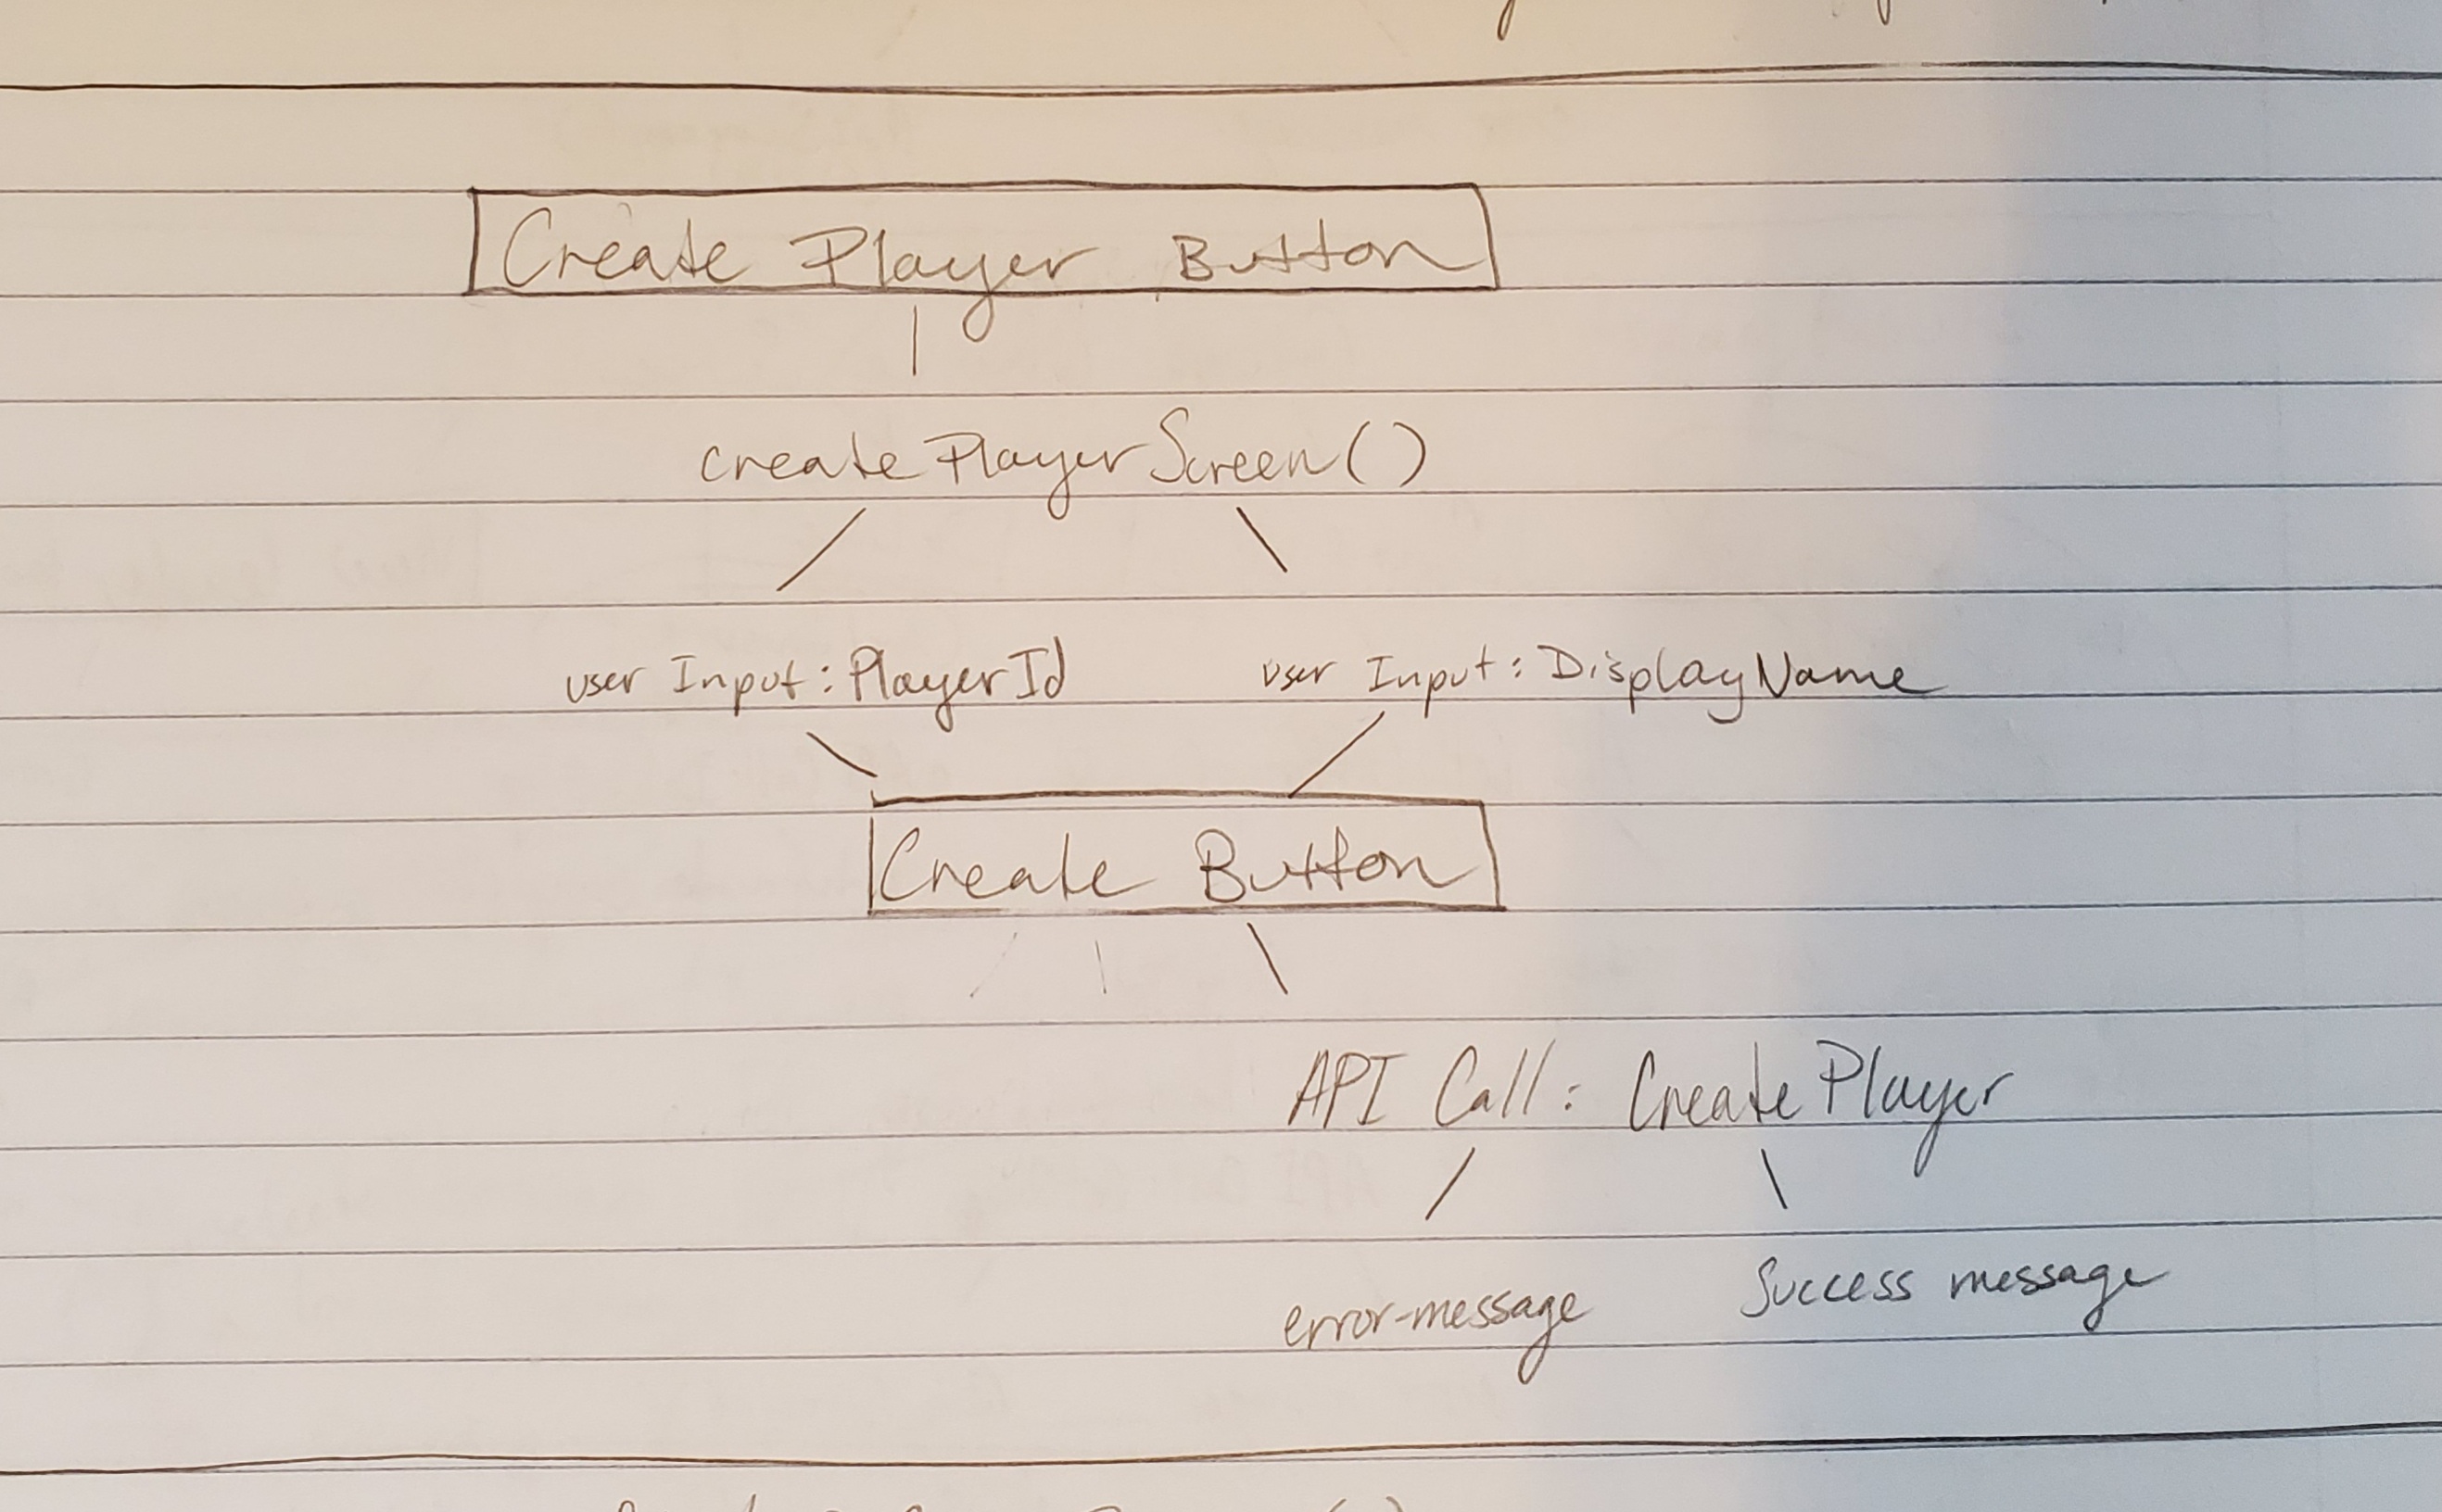 Create Player Button
createPlayerScreen()
user Input: PlayerId
user Input: DisplayName
Create Button
API Call: CreatePlayer
error-message
Success message